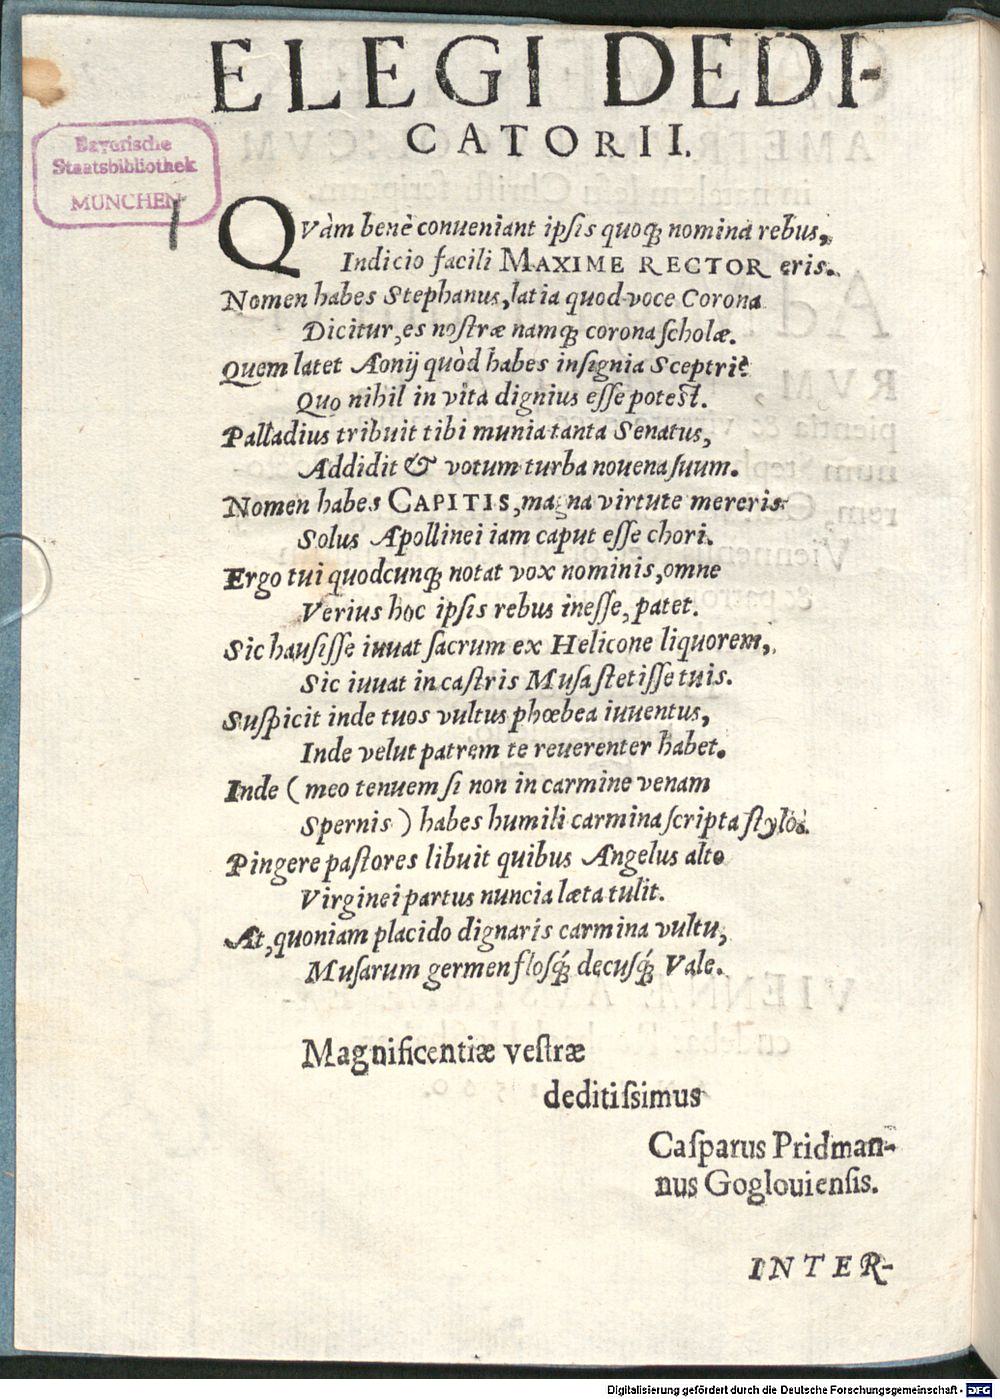 ELEGI DEDI-
CATORII.
Bayerische
Staatsbibliothek
MÜNCHEN
QVàm benè conueniant ipſis quoq́; nomina rebus,
Indicio facili MAXIME RECTOR eris.
Nomen habes Stephanus, latia quod voce Corona
Dicitur, es noſtræ namq́; corona ſcholæ.
Quem latet Aonij quòd habes inſignia Sceptri?
Quo nihil in vita dignius eſſe poteſt.
Palladius tribuit tibi munia tanta Senatus,
Addidit & votum turba nouena ſuum.
Nomen habes CAPITIS, magna virtute mereris
Solus Apollinei iam caput eſſe chori.
Ergo tui quodcunq́; notat vox nominis, omne
Verius hoc ipſis rebus ineſſe, patet.
Sic hauſiſſe iuuat ſacrum ex Helicone liquorem,
Sic iuuat in caſtris Muſa ſtetiſſe tuis.
Suſpicit inde tuos vultus phœbea iuuentus,
Inde velut patrem te reuerenter habet.
Inde (meo tenuem ſi non in carmine venam
Spernis) habes humili carmina ſcripta ſtylo.
Pingere paſtores libuit quibus Angelus alto
Virginei partus nuncia læta tulit.
At, quoniam placido dignaris carmina vultu,
Muſarum germen floſq́; decuſq́; Vale.
Magnificentiæ veſtræ
deditiſsimus
Caſparus Pridman-
nus Goglouienſis.
INTER-
Digitalisierung gefördert durch die Deutsche Forschungsgemeinschaft - DFG